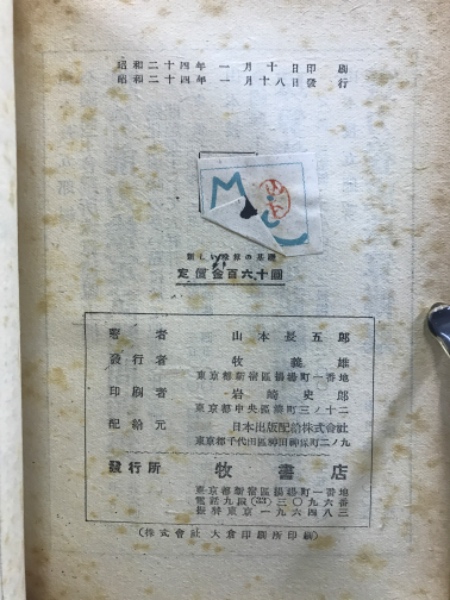 昭和二十四年一月十日印刷
昭和二十四年一月十八日發行
M
新しい の基礎
定價金百六十圓
著者 山本長五郎
發行者 牧義雄
東京都新宿區揚場町一番地
印刷者 岩崎史郎
東京都中央區湊町三ノ十二
配給元 日本出版配給株式會社
東京都千代田區神田神保町二ノ九
發行所 牧書店
東京都新宿區揚場町一番地
電話九段(33)三〇九六番
振替東京一九六四八三
(株式會社 大倉印刷所印刷)